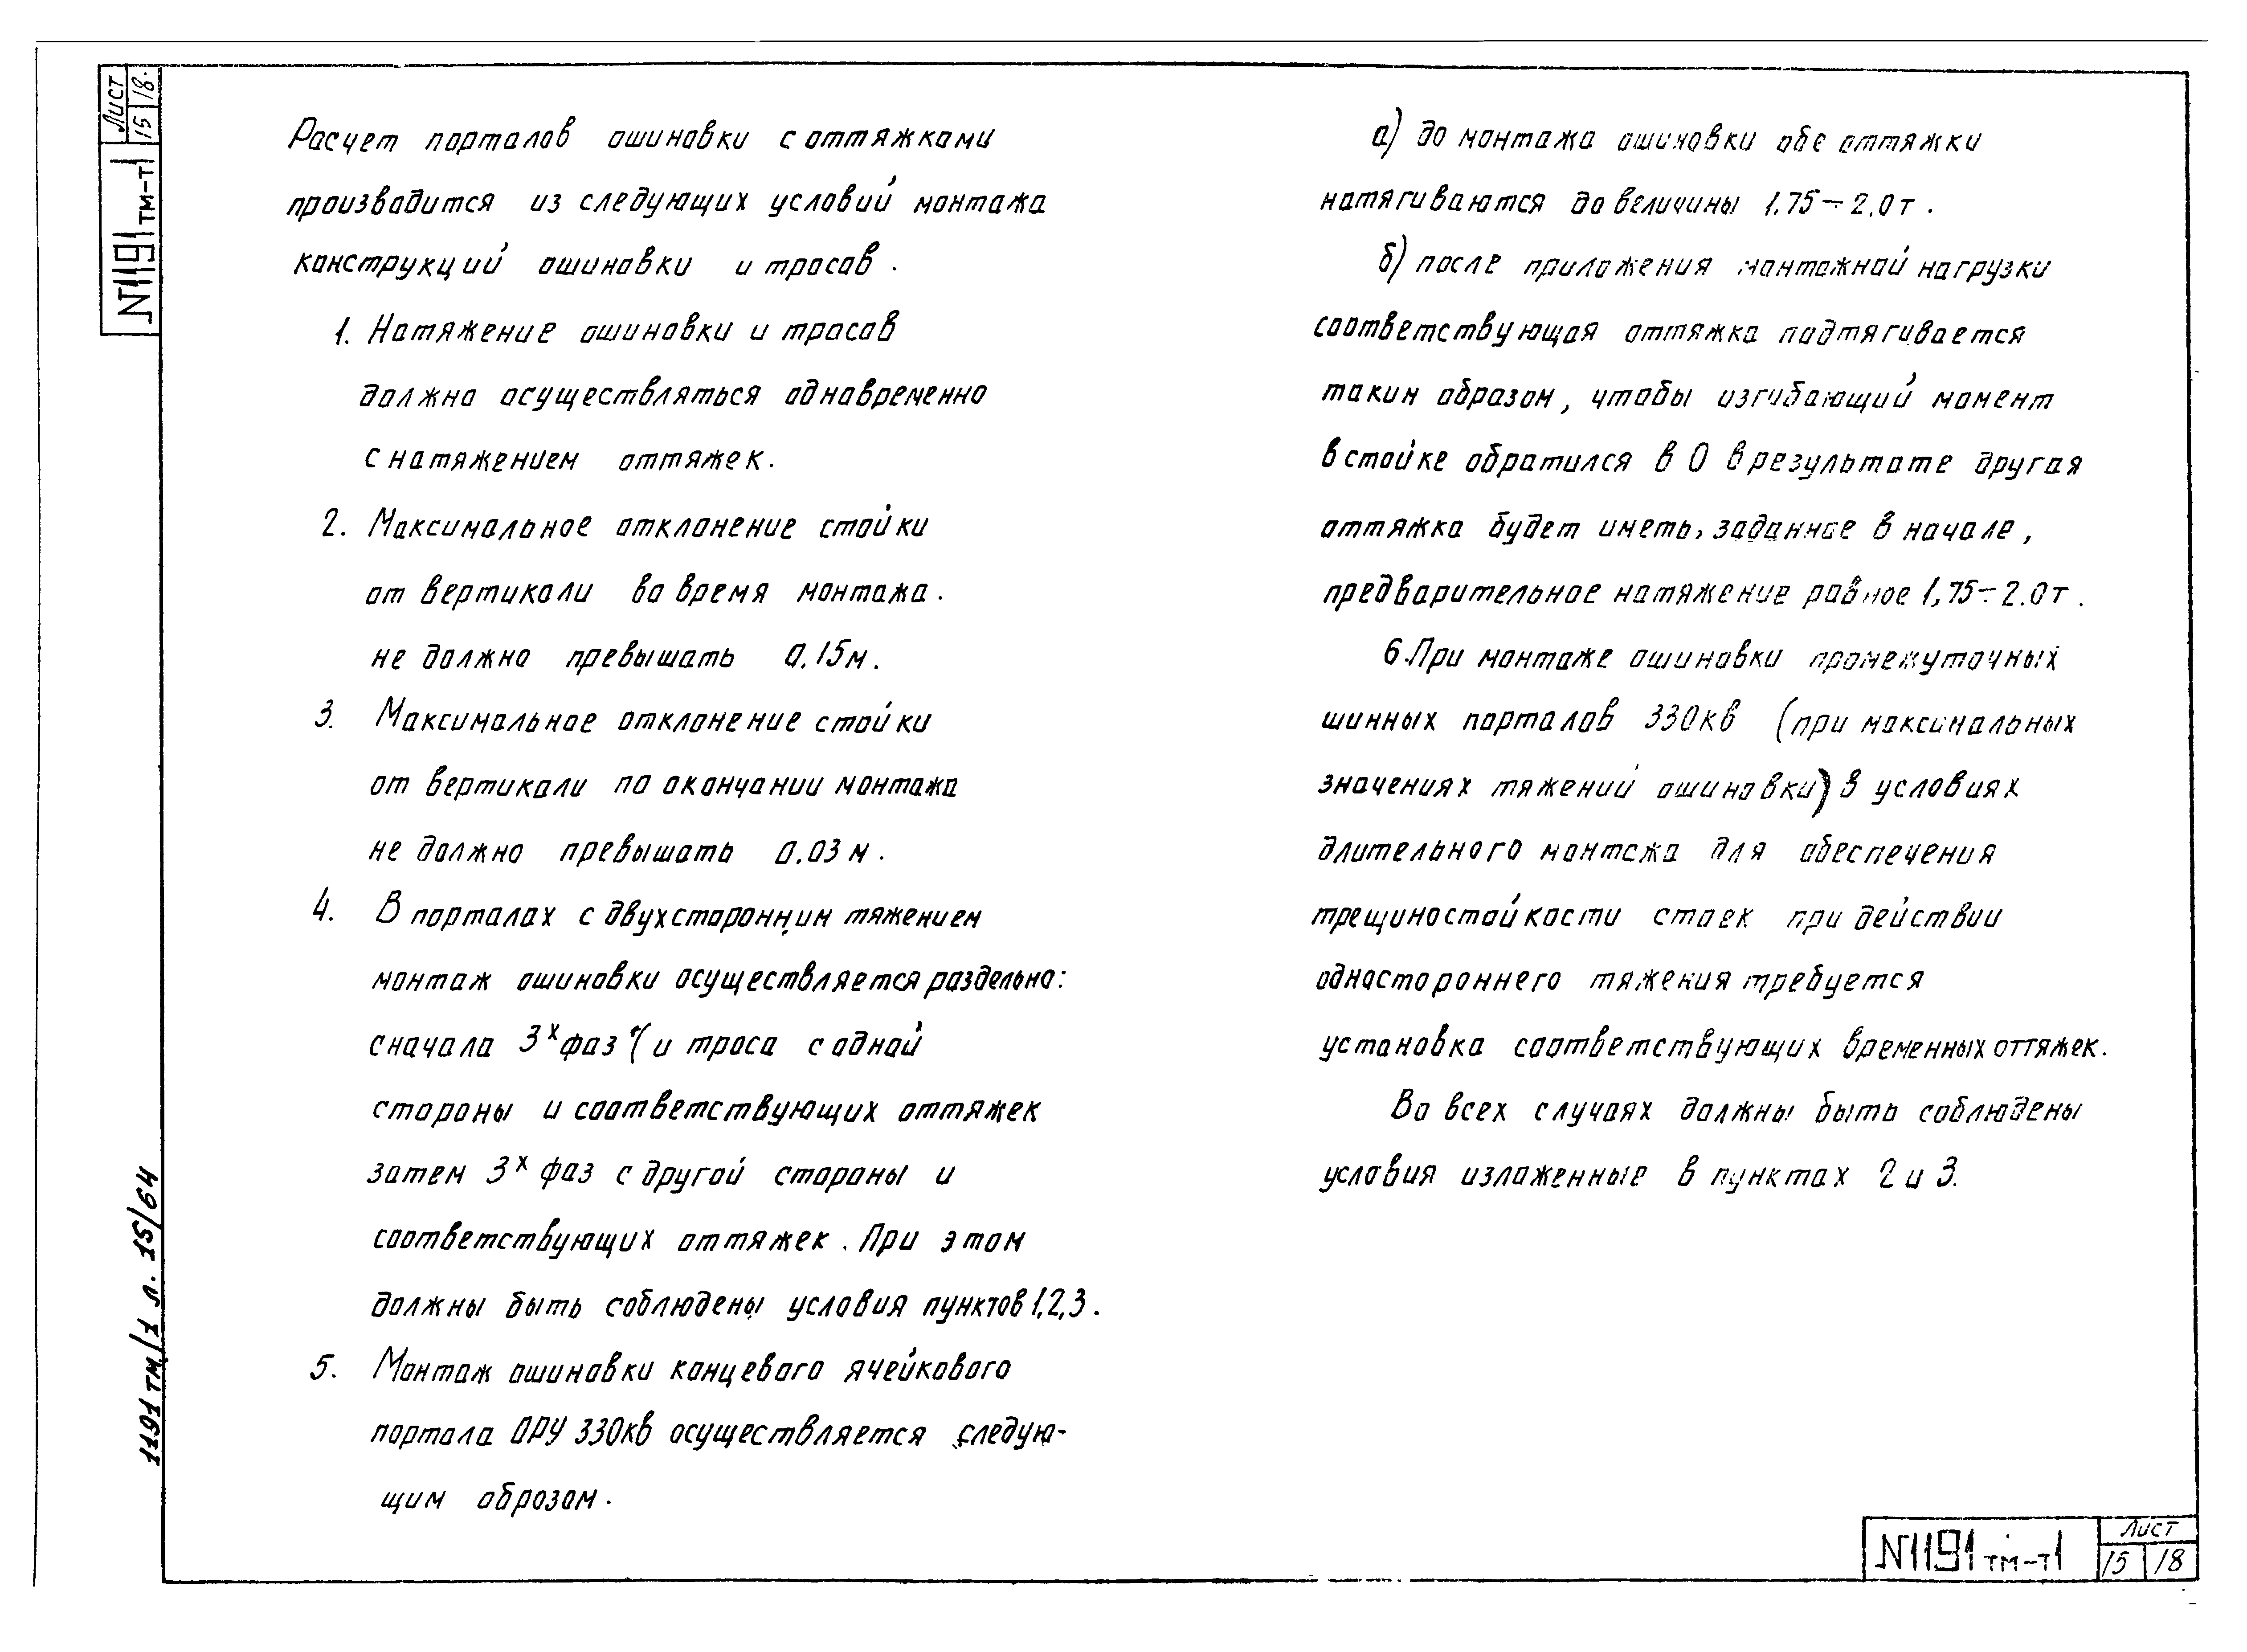 Лист
15 18.
N1191 тм-т1
Расчет порталов ошиновки с оттяжками
производится из следующих условий монтажа
конструкций ошиновки и тросов.
1. Натяжение ошиновки и тросов
должно осуществляться одновременно
с натяжением оттяжек.
2. Максимальное отклонение стойки
от вертикали во время монтажа.
не должно превышать 0.15м.
3. Максимальное отклонение стойки
от вертикали по окончании монтажа
не должно превышать 0.03м.
4. В порталах с двухсторонним тяжением
монтаж ошиновки осуществляется раздельно:
сначала 3х фаз (и троса с одной
стороны и соответствующих оттяжек
затем 3х фаз с другой стороны и
соответствующих оттяжек. При этом
должны быть соблюдены условия пунктов 1,2,3.
5. Монтаж ошиновки концевого ячейкового
портала ОРУ 330кв осуществляется следую-
щим образом.
а) до монтажа ошиновки обе оттяжки
натягиваются до величины 1.75÷2.0т.
б) после приложения монтажной нагрузки
соответствующая оттяжка подтягивается
таким образом, чтобы изгибающий момент
в стойке обратился в 0 в результате другая
оттяжка будет иметь, заданное в начале,
предварительное натяжение равное 1,75÷2.0т.
6. При монтаже ошиновки промежуточных
шинных порталов 330кв (при максимальных
значениях тяжений ошиновки) в условиях
длительного монтажа для обеспечения
трещиностойкости стоек при действии
одностороннего тяжения требуется
установка соответствующих временных оттяжек.
Во всех случаях должны быть соблюдены
условия изложенные в пунктах 2 и 3.
1191тм/1 л. 15/64
N1191 тм-т1
Лист
15 18